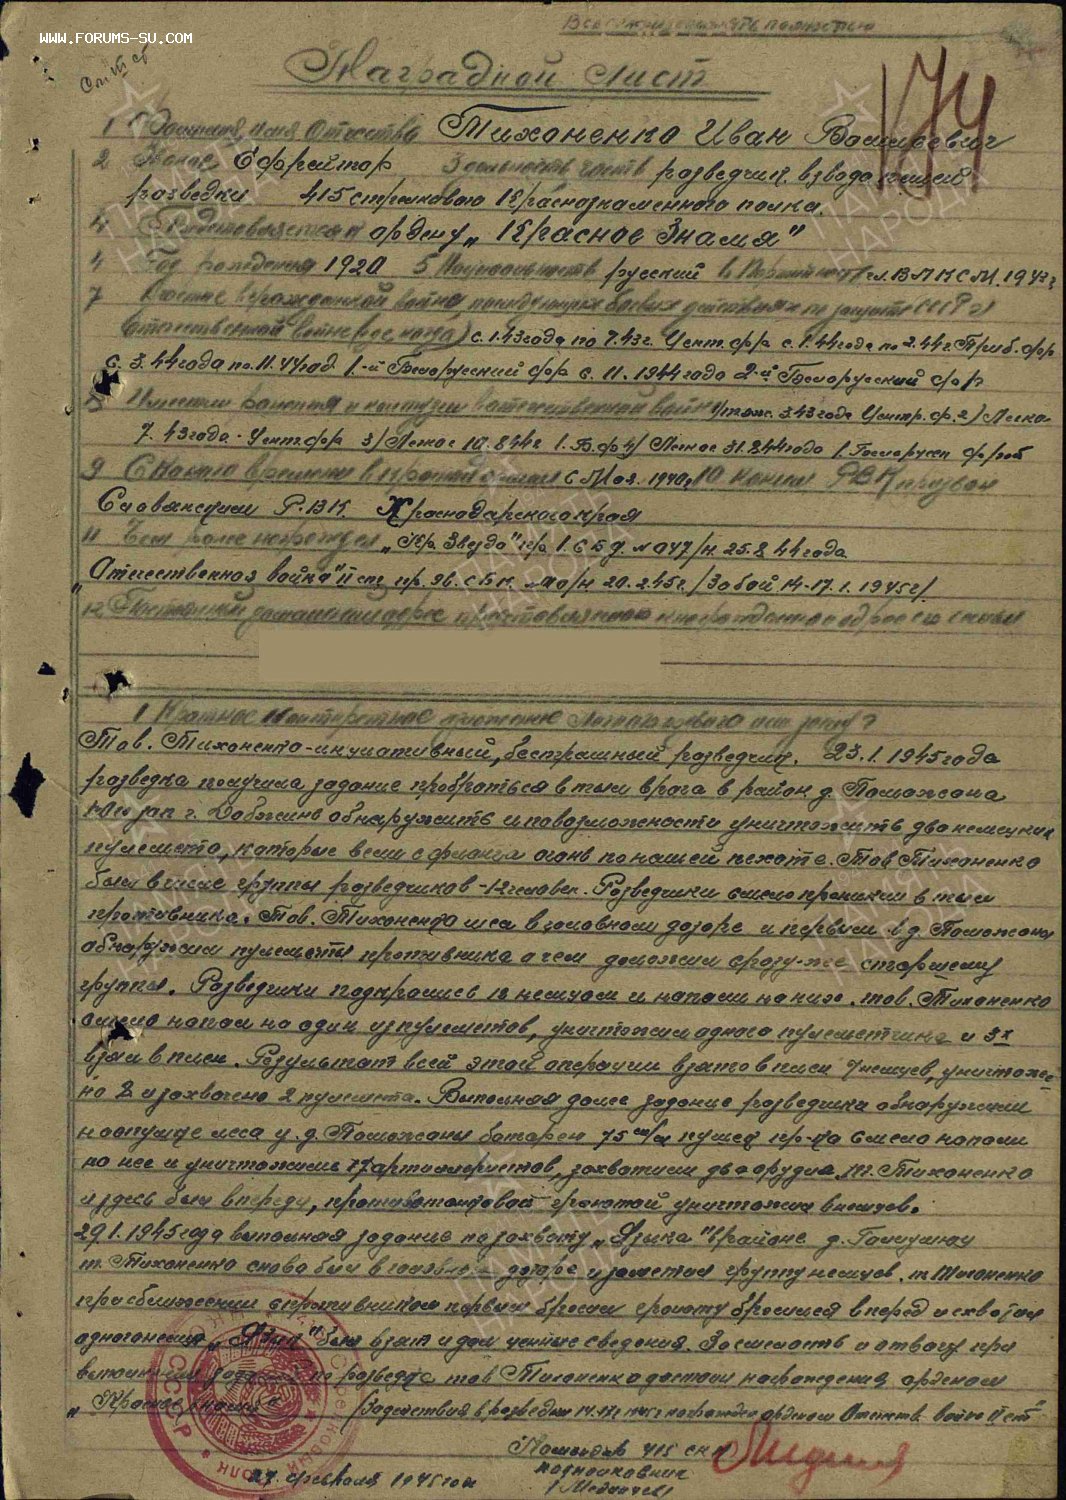 WWW.FORUMS-SU.COM
174
Наградной лист
1 Фамилия, имя Отчество Тихоненко Иван Васильевич
2 Звание Ефрейтор 3 должность, часть разведчик взвода пешей
разведки 415 стрелкового Краснознаменного полка.
4 Представляется к ордену „Красное Знамя"
4 Год рождения 1920 5 Национальность русский 6 Партийность чл. ВЛКСМ. 1942г
7 Участие в гражданской войне, последующих боевых действиях по защите СССР и
отечественной войне (где, когда) с 1.43 года по 7.43 г. Центр. фр с 1.44 года по 2.44 г. Приб. фр
с 3.44 года по 11.44 год 1-й Белорусский фр с 11.1944 года 2-й Белорусский фр
8 Имеет ли ранения и контузии в отечественной войне 3.43 года Центр. ф. 2) Легко
7.43 года. Центр фр 3) Легкое 10.8.44 г 1. Б. ф 4) Легкое 31.8.44 года 1 Белорусск фронт
9 С какого времени в Красной армии с 1940 г 10 Каким РВК призван
Славянским Р.ВК. Краснодарского края
11 Чем ранее награжден „Кр Звезда" пр 1. С Б д. № 047/н 25.8 44 года
„Отечественная война" II ст пр. 96. с Б к. 20.2.45 г. /За бой 14-17.1.1945 г/.
12 Постоянный домашний адрес представляемого к награждению и адрес его семьи
1 Краткое конкретное изложение личного боевого подвига
Тов. Тихоненко-инициативный, бесстрашный разведчик. 23.1.1945 года
разведка получила задание пробраться в тыл врага в район д. Поможаны
г. обнаружить и по возможности уничтожить два немецких
пулемета, которые вели с фланга огонь по нашей пехоте. Тов Тихоненко
был в числе группы разведчиков - 12 человек. Разведчики смело проникли в тыл
противника. Тов. Тихоненко шел в головном дозоре и первым в д. Поможаны
обнаружил пулеметы противника о чем доложил сразу-же старшему
группы. Разведчики подкрались к немцам и напали на них. тов. Тихоненко
смело напал на один из пулеметов, уничтожил одного пулеметчика и 3х
взял в плен. Результат всей этой операции взято в плен 7 немцев, уничтоже-
но 8 и захвачено 2 пулемета. Выполняя далее задание разведчики обнаружили
на опушке леса у д. Поможаны батарею 75 м/м пушек пр-ка смело напали
на нее и уничтожили 17 артиллеристов, захватили два орудия. т. Тихоненко
и здесь был впереди, противотанковой гранатой уничтожил немцев.
29.1.1945 года выполняя задание по захвату „Языка" в районе д.
т. Тихоненко снова был в головном дозоре и заметил группу немцев. т Тихоненко
при сближении с противником первым бросил гранату бросился вперед и схватил
одного немца. „Язык" был взят и дал ценные сведения. За смелость и отвагу при
выполнении заданий по разведке тов Тихоненко достоин награждения орденом
„Красное знамя" (За действия в разведке 14.17.1.45 г награжден орденом Отечеств. войны II ст"
Командир 415 СКП
подполковник
27. февраля 1945 года